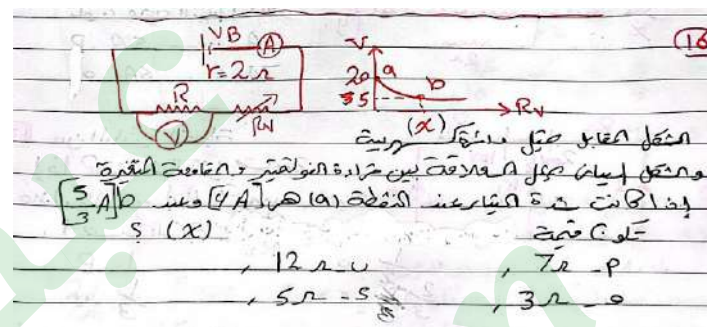 16
VB A
r=2Ω
R
V
Rv
V
20 a
b
5
(x)
Rv
الشكل المقابل يمثل دائرة كهربية
والشكل البياني يمثل العلاقة بين قراءة الفولتميتر والمقاومة المتغيرة
إذا كانت شدة التيار عند النقطة (a) هي [4A] وعند b [5/3 A]
تكون قيمة (x) ؟
P- 7Ω , ب- 12Ω ,
ج- 3Ω , د- 5Ω